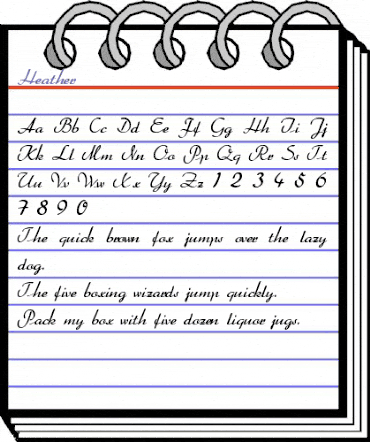 Heather
Aa Bb Cc Dd Ee Ff Gg Hh Ii Jj
Kk Ll Mm Nn Oo Pp Qq Rr Ss Tt
Uu Vv Ww Xx Yy Zz 1 2 3 4 5 6
7 8 9 0
The quick brown fox jumps over the lazy
dog.
The five boxing wizards jump quickly.
Pack my box with five dozen liquor jugs.